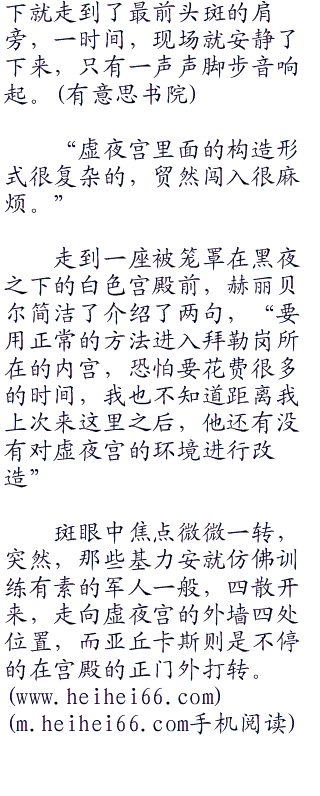 下就走到了最前头斑的肩
旁，一时间，现场就安静了
下来，只有一声声脚步音响
起。(有意思书院)
“虚夜宫里面的构造形
式很复杂的，贸然闯入很麻
烦。”
走到一座被笼罩在黑夜
之下的白色宫殿前，赫丽贝
尔简洁了介绍了两句，“要
用正常的方法进入拜勒岗所
在的内宫，恐怕要花费很多
的时间，我也不知道距离我
上次来这里之后，他还有没
有对虚夜宫的环境进行改
造”
斑眼中焦点微微一转，
突然，那些基力安就仿佛训
练有素的军人一般，四散开
来，走向虚夜宫的外墙四处
位置，而亚丘卡斯则是不停
的在宫殿的正门外打转。
(www.heihei66.com)
(m.heihei66.com手机阅读)